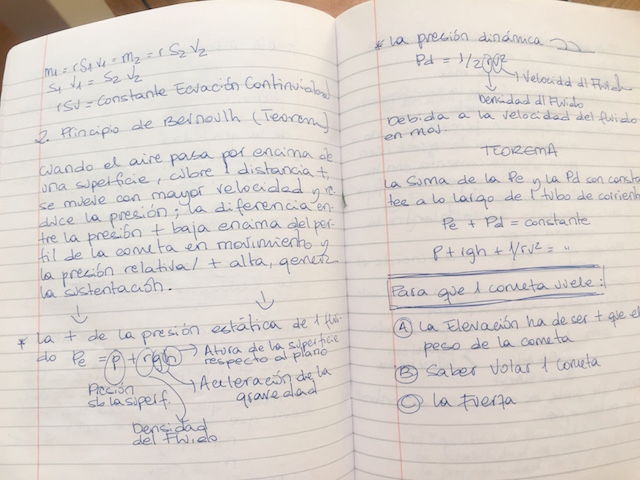 m1 = r S1 v1 = m2 = r S2 V2
S1 V1 = S2 V2
rSV = Constante Ecuación Continuidad
2. Principio de Bernoulli (Teorema)
Cuando el aire pasa por encima de
una superficie, cubre 1 distancia +,
se mueve con mayor velocidad y re-
duce la presión; la diferencia en-
tre la presión + baja encima del per-
fil de la cometa en movimiento y
la presión relativa/ + alta, genera
la sustentación.
* La + de la presión estática de 1 flui-
do Pe = p + rgh → Atura de la superficie
respecto al plano
Aceleración de la
gravedad
sb la superf.
Densidad
del Fluido
* La presión dinámica
Pd = 1/2 rv²
Velocidad dl Fluido
Densidad dl Fluido
Debida a la velocidad del fluido
en mov.
TEOREMA
La suma de la Pe y la Pd son constan
tes a lo largo de 1 tubo de corriente
Pe + Pd = constante
P + rgh + 1/rv² = "
Para que 1 cometa vuele:
A La Elevación ha de ser + que el
peso de la cometa
B Saber Volar 1 cometa
C La Fuerza